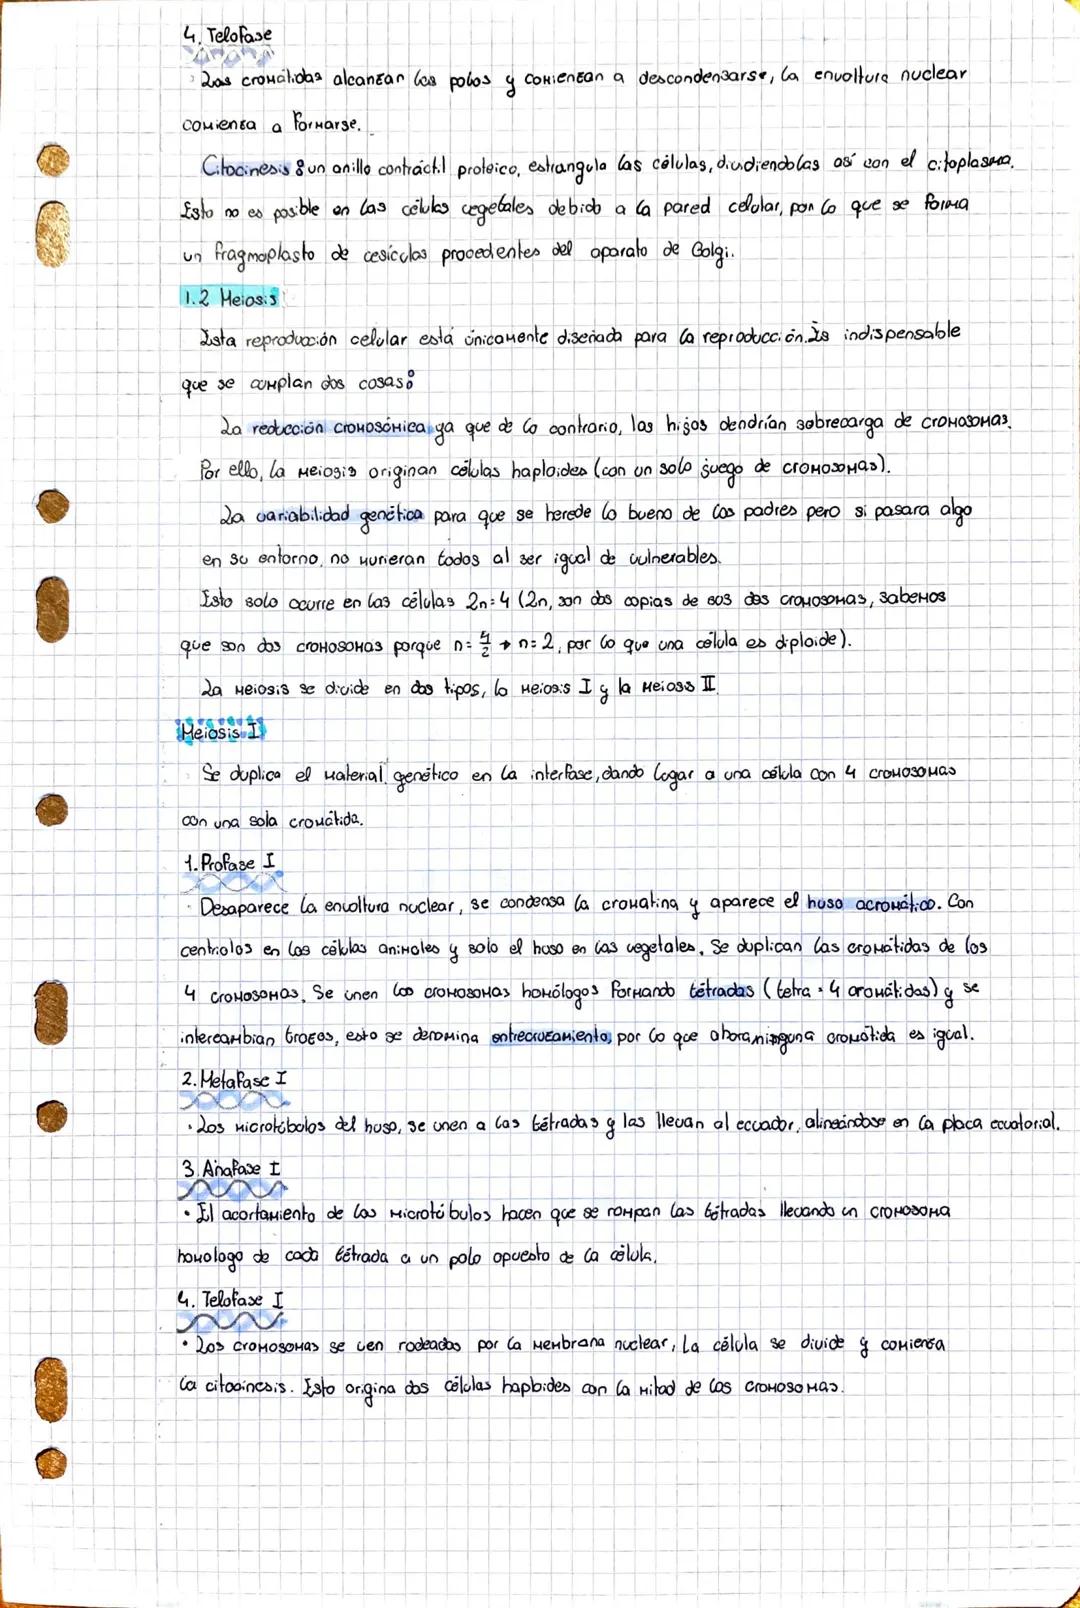 4. Telofase
Las cromátidas alcanzan los polos y comienzan a descondensarse, la envoltura nuclear
comienza a formarse.
Citocinesis: un anillo contráctil proteico, estrangula las células, dividiendolas así con el citoplasma.
Esto no es posible en las células vegetales debido a la pared celular, por lo que se forma
un fragmoplasto de vesículas procedentes del aparato de Golgi.
1.2 Meiosis
Esta reproducción celular está únicamente diseñada para la reproducción. Es indispensable
que se cumplan dos cosas:
La reducción cromosómica, ya que de lo contrario, los hijos dendrían sobrecarga de cromosomas.
Por ello, la meiosis originan células haploides (con un solo juego de cromosomas).
La variabilidad genética para que se herede lo bueno de los padres pero si pasara algo
en su entorno, no murieran todos al ser igual de vulnerables.
Esto solo ocurre en las células 2n=4 (2n, son dos copias de sus dos cromosomas, sabemos
que son dos cromosomas porque n= 4/2 → n=2, por lo que una célula es diploide).
La meiosis se divide en dos tipos, la Meiosis I y la Meioss II.
Meiosis I
Se duplica el material genético en la interfase, dando lugar a una célula con 4 cromosomas
con una sola cromátida.
1. Profase I
· Desaparece la envoltura nuclear, se condensa la cromatina y aparece el huso acromático. Con
centriolos en las células animales y solo el huso en las vegetales. Se duplican las cromátidas de los
4 cromosomas, Se unen los cromosomas homólogos formando tétradas (tetra = 4 cromátidas) y se
intercambian trozos, esto se denomina entrecruzamiento, por lo que ahora ninguna cromátida es igual.
2. Metafase I
· Los microtúbolos del huso, se unen a las tétradas y las llevan al ecuador, alineándose en la placa ecuatorial.
3. Anafase I
· El acortamiento de los microtúbulos hacen que se rompan las tétradas llevando un cromosoma
homologo de cada tétrada a un polo opuesto de la célula.
4. Telofase I
· Los cromosomas se ven rodeados por la membrana nuclear, La célula se divide y comienza
la citocinesis. Esto origina dos células haploides con la mitad de los cromosomas.